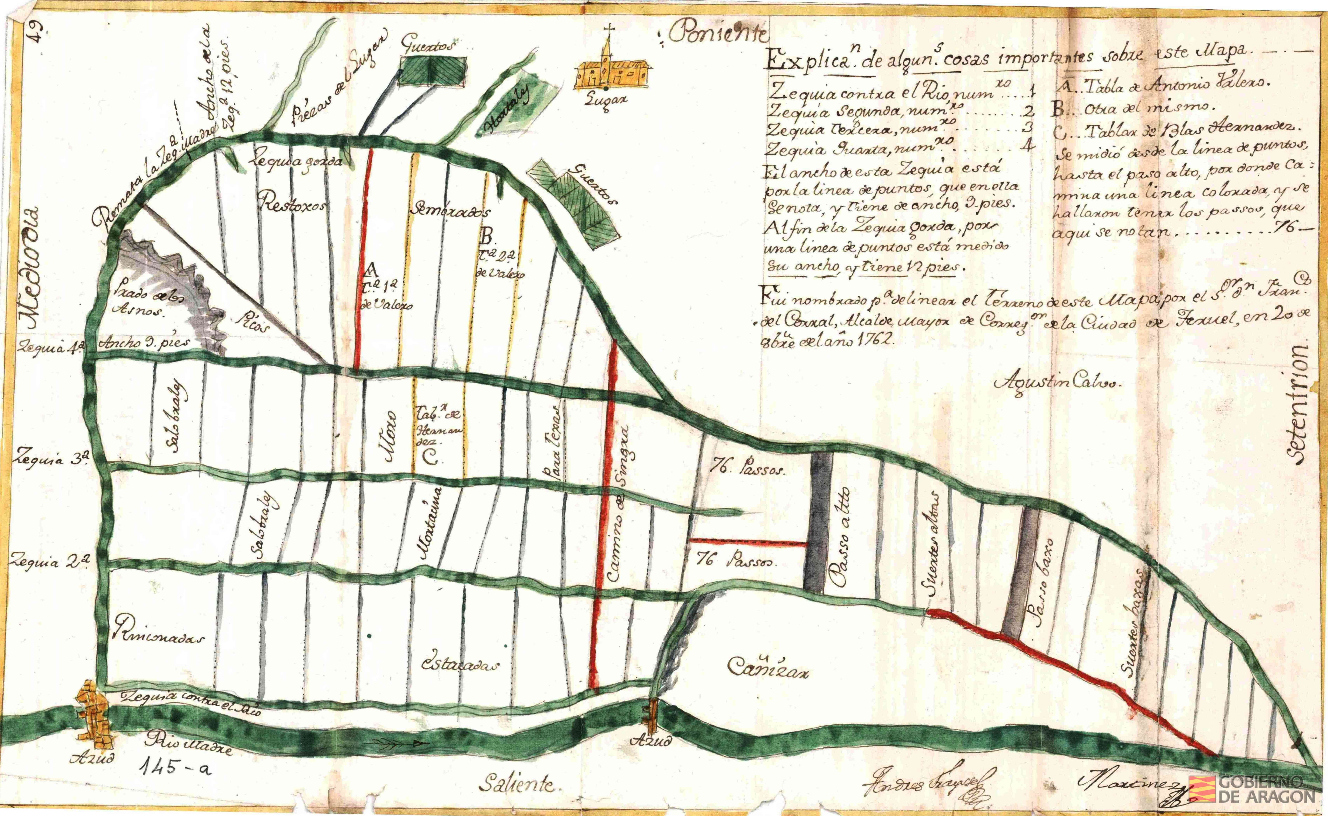 49
: Poniente
Medio dia
Setentrion.
Saliente.
Explicaⁿ. de algunˢ. cosas importantes sobre este Mapa.
Zequia contra el Rio, numˣᵒ....1
Zequia Segunda, numˣᵒ. ........2
Zequia tercera, numˣᵒ ........3
Zequia quarta, numˣᵒ. ........4
El ancho de esta Zequia está
por la linea de puntos, que en ella
se nota, y tiene de ancho, 9. pies.
Al fin de la Zequia gorda, por
una linea de puntos está medido
su ancho, y tiene 12 pies.
A.. Tabla de Antonio Valero.
B... Otra del mismo.
C... Tablar de Blas Hernandez.
Se midió desde la linea de puntos,
hasta el paso alto, por donde ca=
mina una linea colorada, y se
hallaron tener los passos, que
aqui se notan .......... 76—
Fui nombrado pᵃ. delinear el terreno de este Mapa, por el Sᵒʳ. Dⁿ. Franᶜᵒ
del Corral, Alcalde Mayor de Corregᵒⁿ de la Ciudad de Teruel, en 20 de
8bre del año 1762.
Agustin Calvo.
Remata la Zeqᵃ. Madre
Ancho de la
Zeqᵃ. 12 pies.
Piezas del Lugar
Guertos
Hortales
Lugar
Guertos
Zequia gorda
Restoxos
Sembrados
A
Tᵃ. 1ᵃ
de Valero
B.
Tᵃ. 2ᵃ.
de Valero
Prado de los
Asnos.
Picos
Zequia 4ᵃ
Ancho 9. pies
Salobrales
Moxo
Tabˣ. de
Hernan
dez.
C.
Para Texas
Camino de Singra
Zequia 3ᵃ.
76. Passos.
Salobrales
76 Passos.
Passo altto
Suertes altas
Passo baxo
Suertes baxas
Zequia 2ᵃ
Rinconadas
éstacadas
Cañizar
Zequia contra el Rio
Rio Madre
Azud
Azud
145-a
Andres
Martinez
GOBIERNO
DE ARAGON